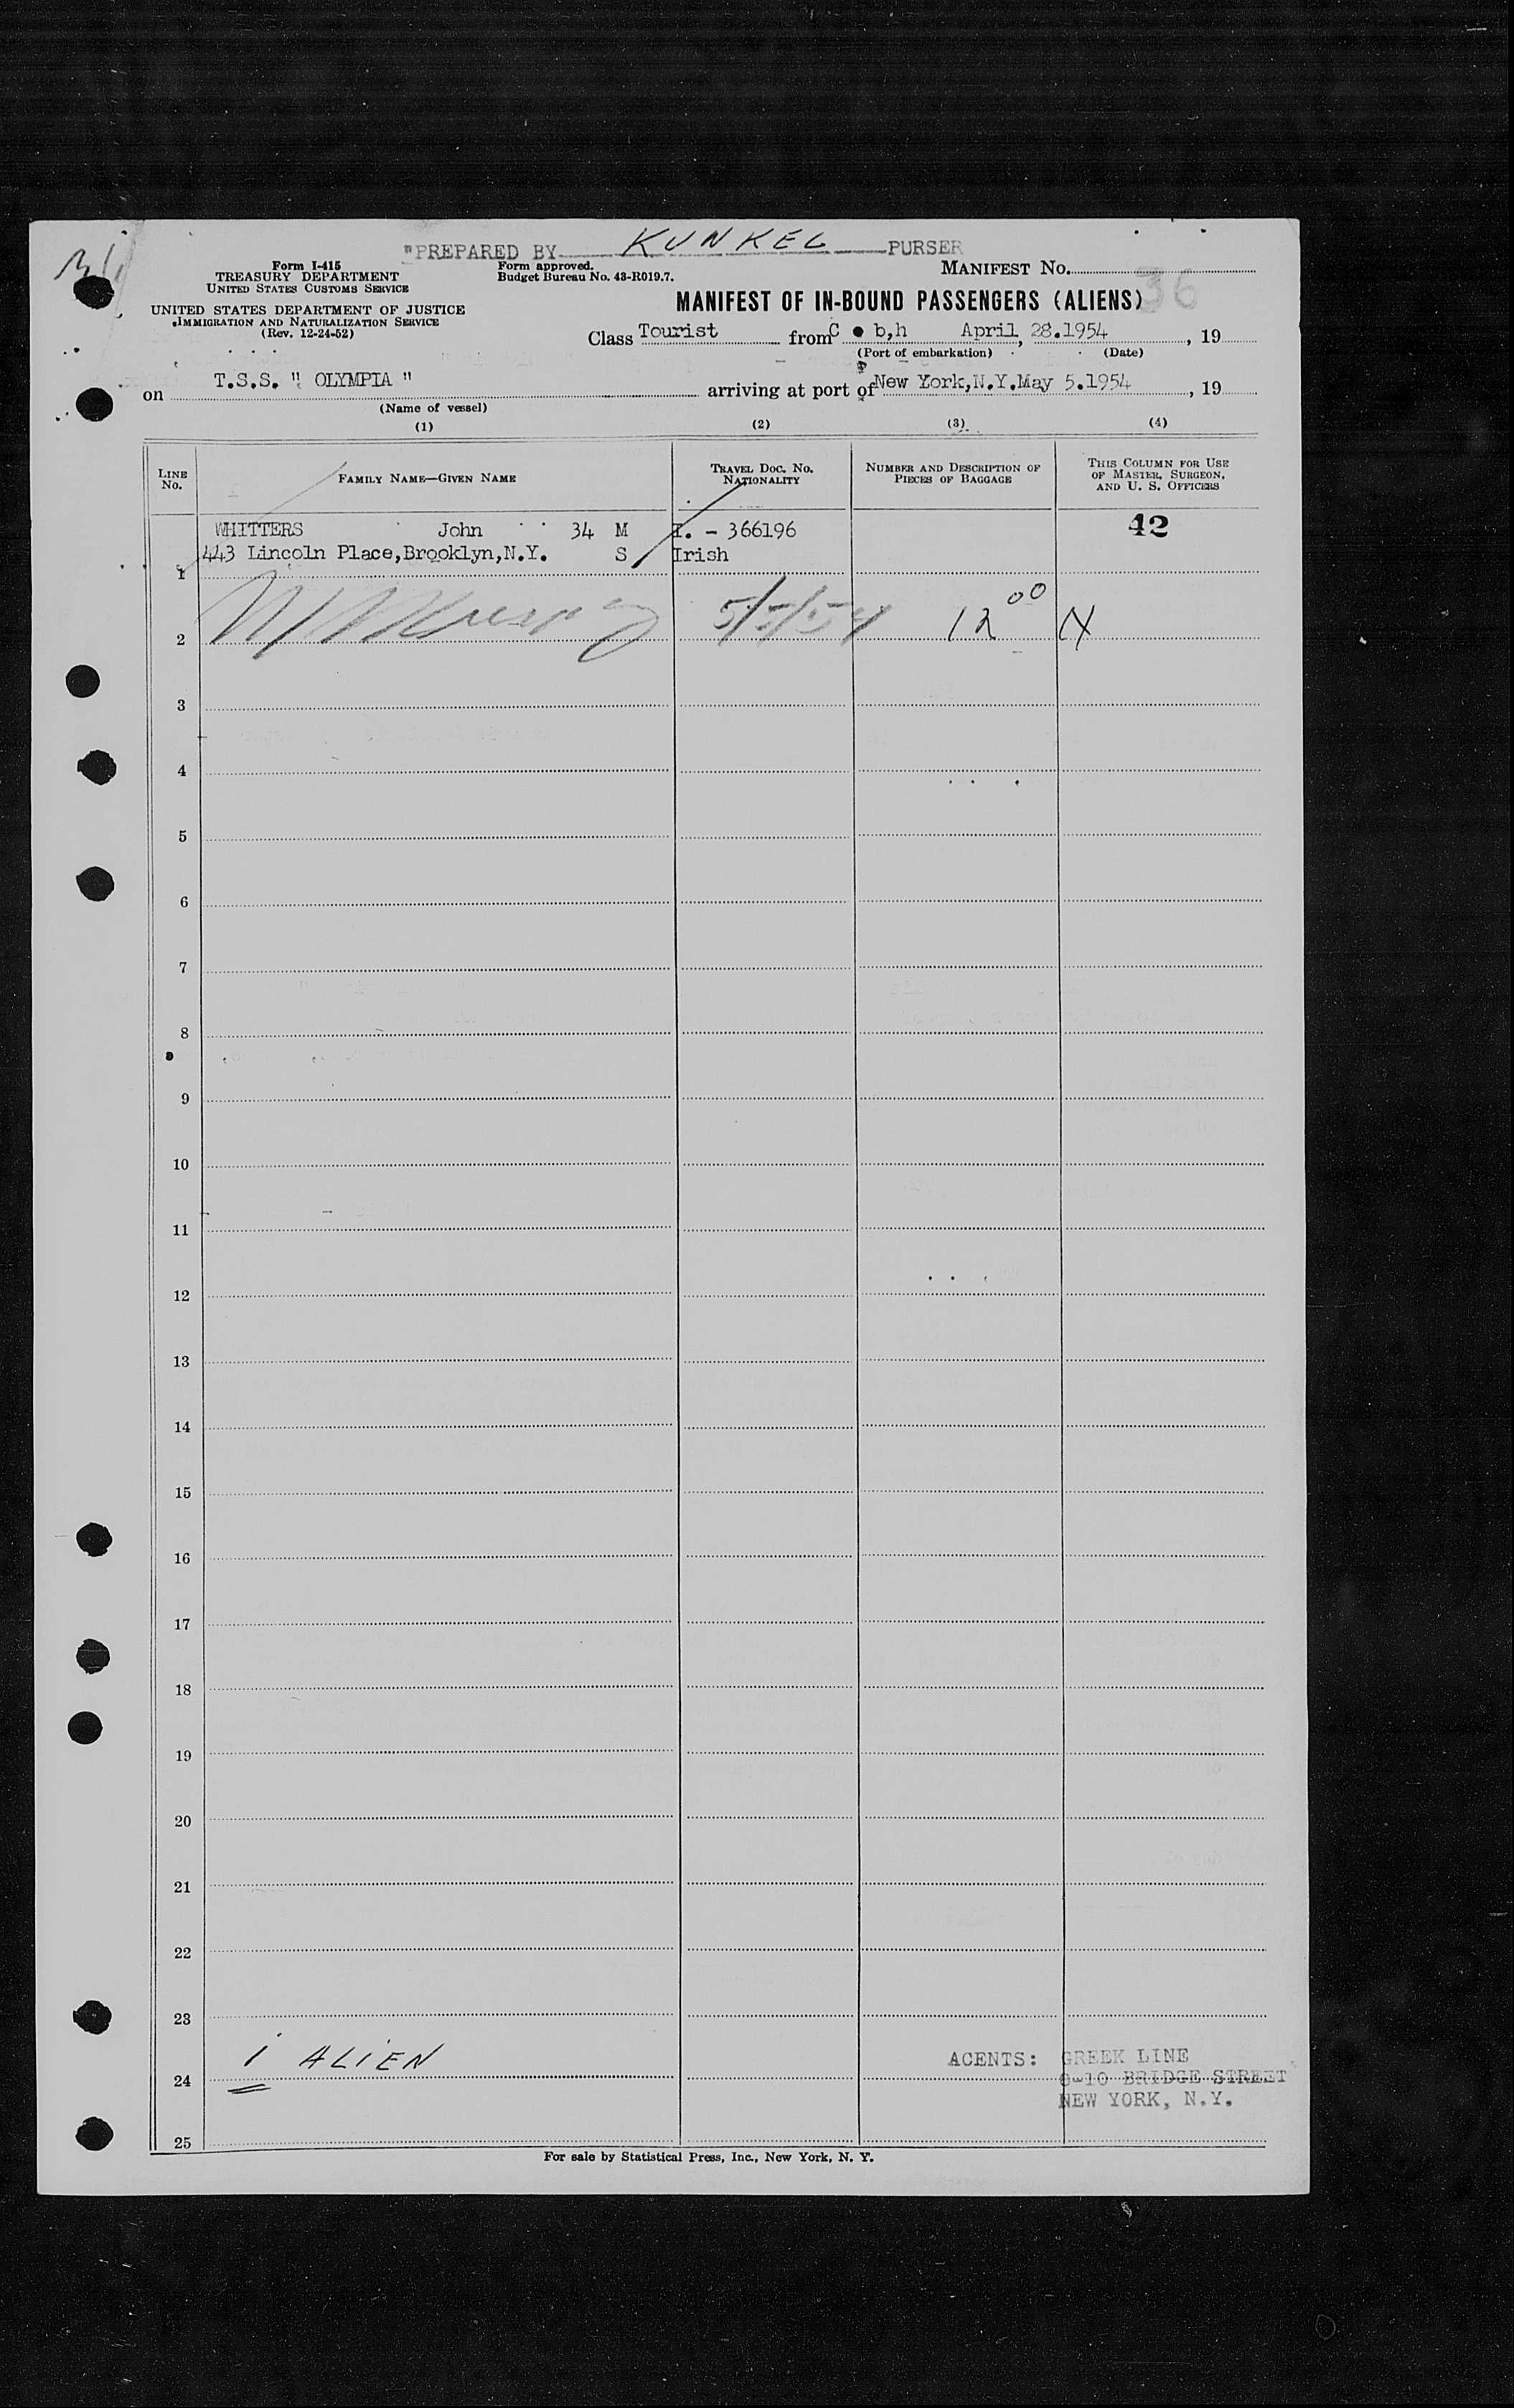 "PREPARED BY KUNKEL PURSER
Form I-415
TREASURY DEPARTMENT
UNITED STATES CUSTOMS SERVICE
UNITED STATES DEPARTMENT OF JUSTICE
IMMIGRATION AND NATURALIZATION SERVICE
(Rev. 12-24-52)
Form approved.
Budget Bureau No. 43-R019.7.
MANIFEST NO. 36
MANIFEST OF IN-BOUND PASSENGERS (ALIENS)
Class Tourist from C b,h April, 28.1954, 19
(Port of embarkation) (Date)
on T.S.S. " OLYMPIA " arriving at port of New York,N.Y.May 5.1954, 19
(Name of vessel)
(1) (2) (3) (4)
LINE No. FAMILY NAME—GIVEN NAME TRAVEL DOC. NO. NATIONALITY NUMBER AND DESCRIPTION OF PIECES OF BAGGAGE THIS COLUMN FOR USE OF MASTER, SURGEON, AND U. S. OFFICERS
WHITTERS John 34 M I. - 366196 42
443 Lincoln Place,Brooklyn,N.Y. S Irish
1
2 5/5/54 12 00
3
4
5
6
7
8
9
10
11
12
13
14
15
16
17
18
19
20
21
22
23
1 ALIEN
24
25
ACENTS: GREEK LINE
8-10 BRIDGE STREET
NEW YORK, N.Y.
For sale by Statistical Press, Inc., New York, N. Y.